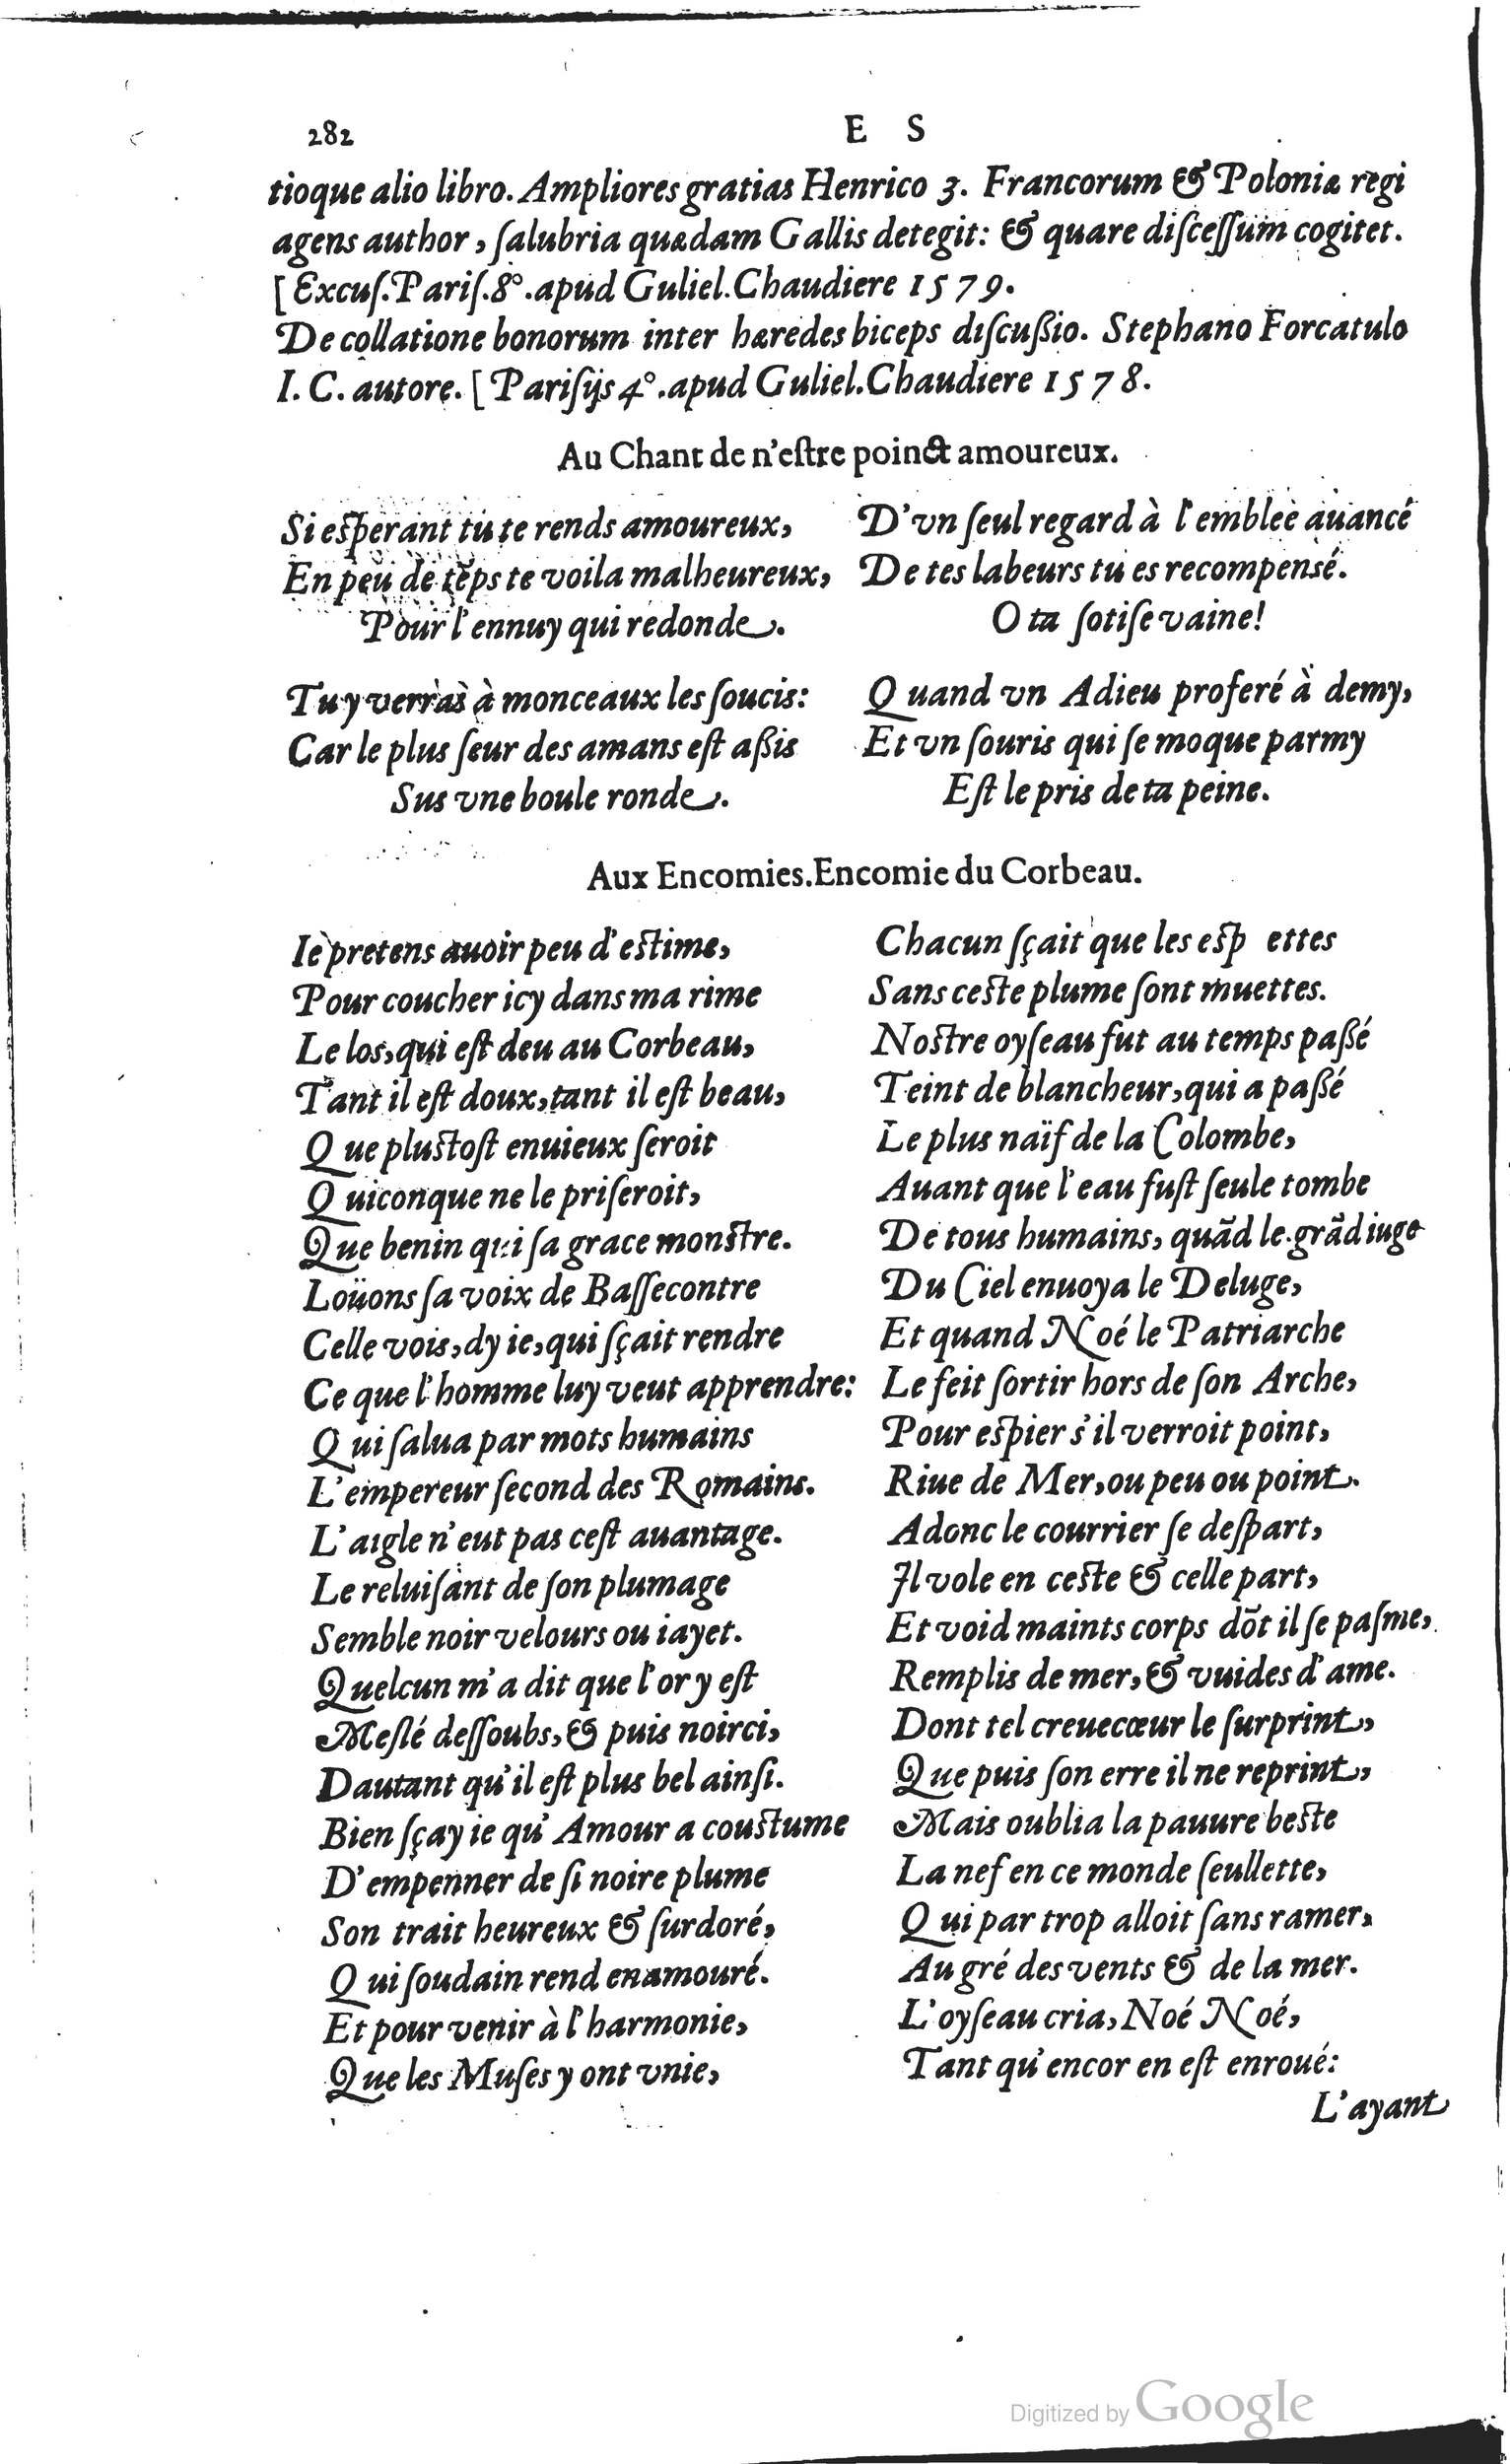 282
E S
tioque alio libro. Ampliores gratias Henrico 3. Francorum & Poloniæ regi
agens author, ſalubria quædam Gallis detegit: & quare diſceſſum cogitet.
[Excuſ. Pariſ. 8°. apud Guliel. Chaudiere 1579.
De collatione bonorum inter hæredes biceps diſcuſsio. Stephano Forcatulo
I. C. autore. [Pariſijs 4°. apud Guliel. Chaudiere 1578.
Au Chant de n'eſtre poinct amoureux.
Si eſperant tu te rends amoureux,
En peu de tẽps te voila malheureux,
Pour l'ennuy qui redonde.
Tu y verras à monceaux les ſoucis:
Car le plus ſeur des amans eſt aſsis
Sus vne boule ronde.
D'vn ſeul regard à l'emblee auancé
De tes labeurs tu es recompensé.
O ta ſotiſe vaine!
Quand vn Adieu proferé à demy,
Et vn ſouris qui ſe moque parmy
Eſt le pris de ta peine.
Aux Encomies. Encomie du Corbeau.
Ie pretens auoir peu d'eſtime,
Pour coucher icy dans ma rime
Le los, qui eſt deu au Corbeau,
Tant il eſt doux, tant il eſt beau,
Que pluſtoſt enuieux ſeroit
Quiconque ne le priſeroit,
Que benin qui ſa grace monſtre.
Loüons ſa voix de Baſſecontre
Celle vois, dy ie, qui ſçait rendre
Ce que l'homme luy veut apprendre:
Qui ſalua par mots humains
L'empereur ſecond des Romains.
L'aigle n'eut pas ceſt auantage.
Le reluiſant de ſon plumage
Semble noir velours ou iayet.
Quelcun m'a dit que l'or y eſt
Meſlé deſſoubs, & puis noirci,
Dautant qu'il eſt plus bel ainſi.
Bien ſçay ie qu'Amour a couſtume
D'empenner de ſi noire plume
Son trait heureux & ſurdoré,
Qui ſoudain rend enamouré.
Et pour venir à l'harmonie,
Que les Muſes y ont vnie,
Chacun ſçait que les eſp ettes
Sans ceſte plume ſont muettes.
Noſtre oyſeau fut au temps paſſé
Teint de blancheur, qui a paſſé
Le plus naïf de la Colombe,
Auant que l'eau fuſt ſeule tombe
De tous humains, quãd le grãd iuge
Du Ciel enuoya le Deluge,
Et quand Noé le Patriarche
Le feit ſortir hors de ſon Arche,
Pour eſpier s'il verroit point,
Riue de Mer, ou peu ou point.
Adonc le courrier ſe deſpart,
Il vole en ceſte & celle part,
Et void maints corps dõt il ſe paſme,
Remplis de mer, & vuides d'ame.
Dont tel creuecœur le ſurprint,
Que puis ſon erre il ne reprint,
Mais oublia la pauure beſte
La nef en ce monde ſeullette,
Qui par trop alloit ſans ramer,
Au gré des vents & de la mer.
L'oyſeau cria, Noé Noé,
Tant qu'encor en eſt enroué:
L'ayant
Digitized by Google